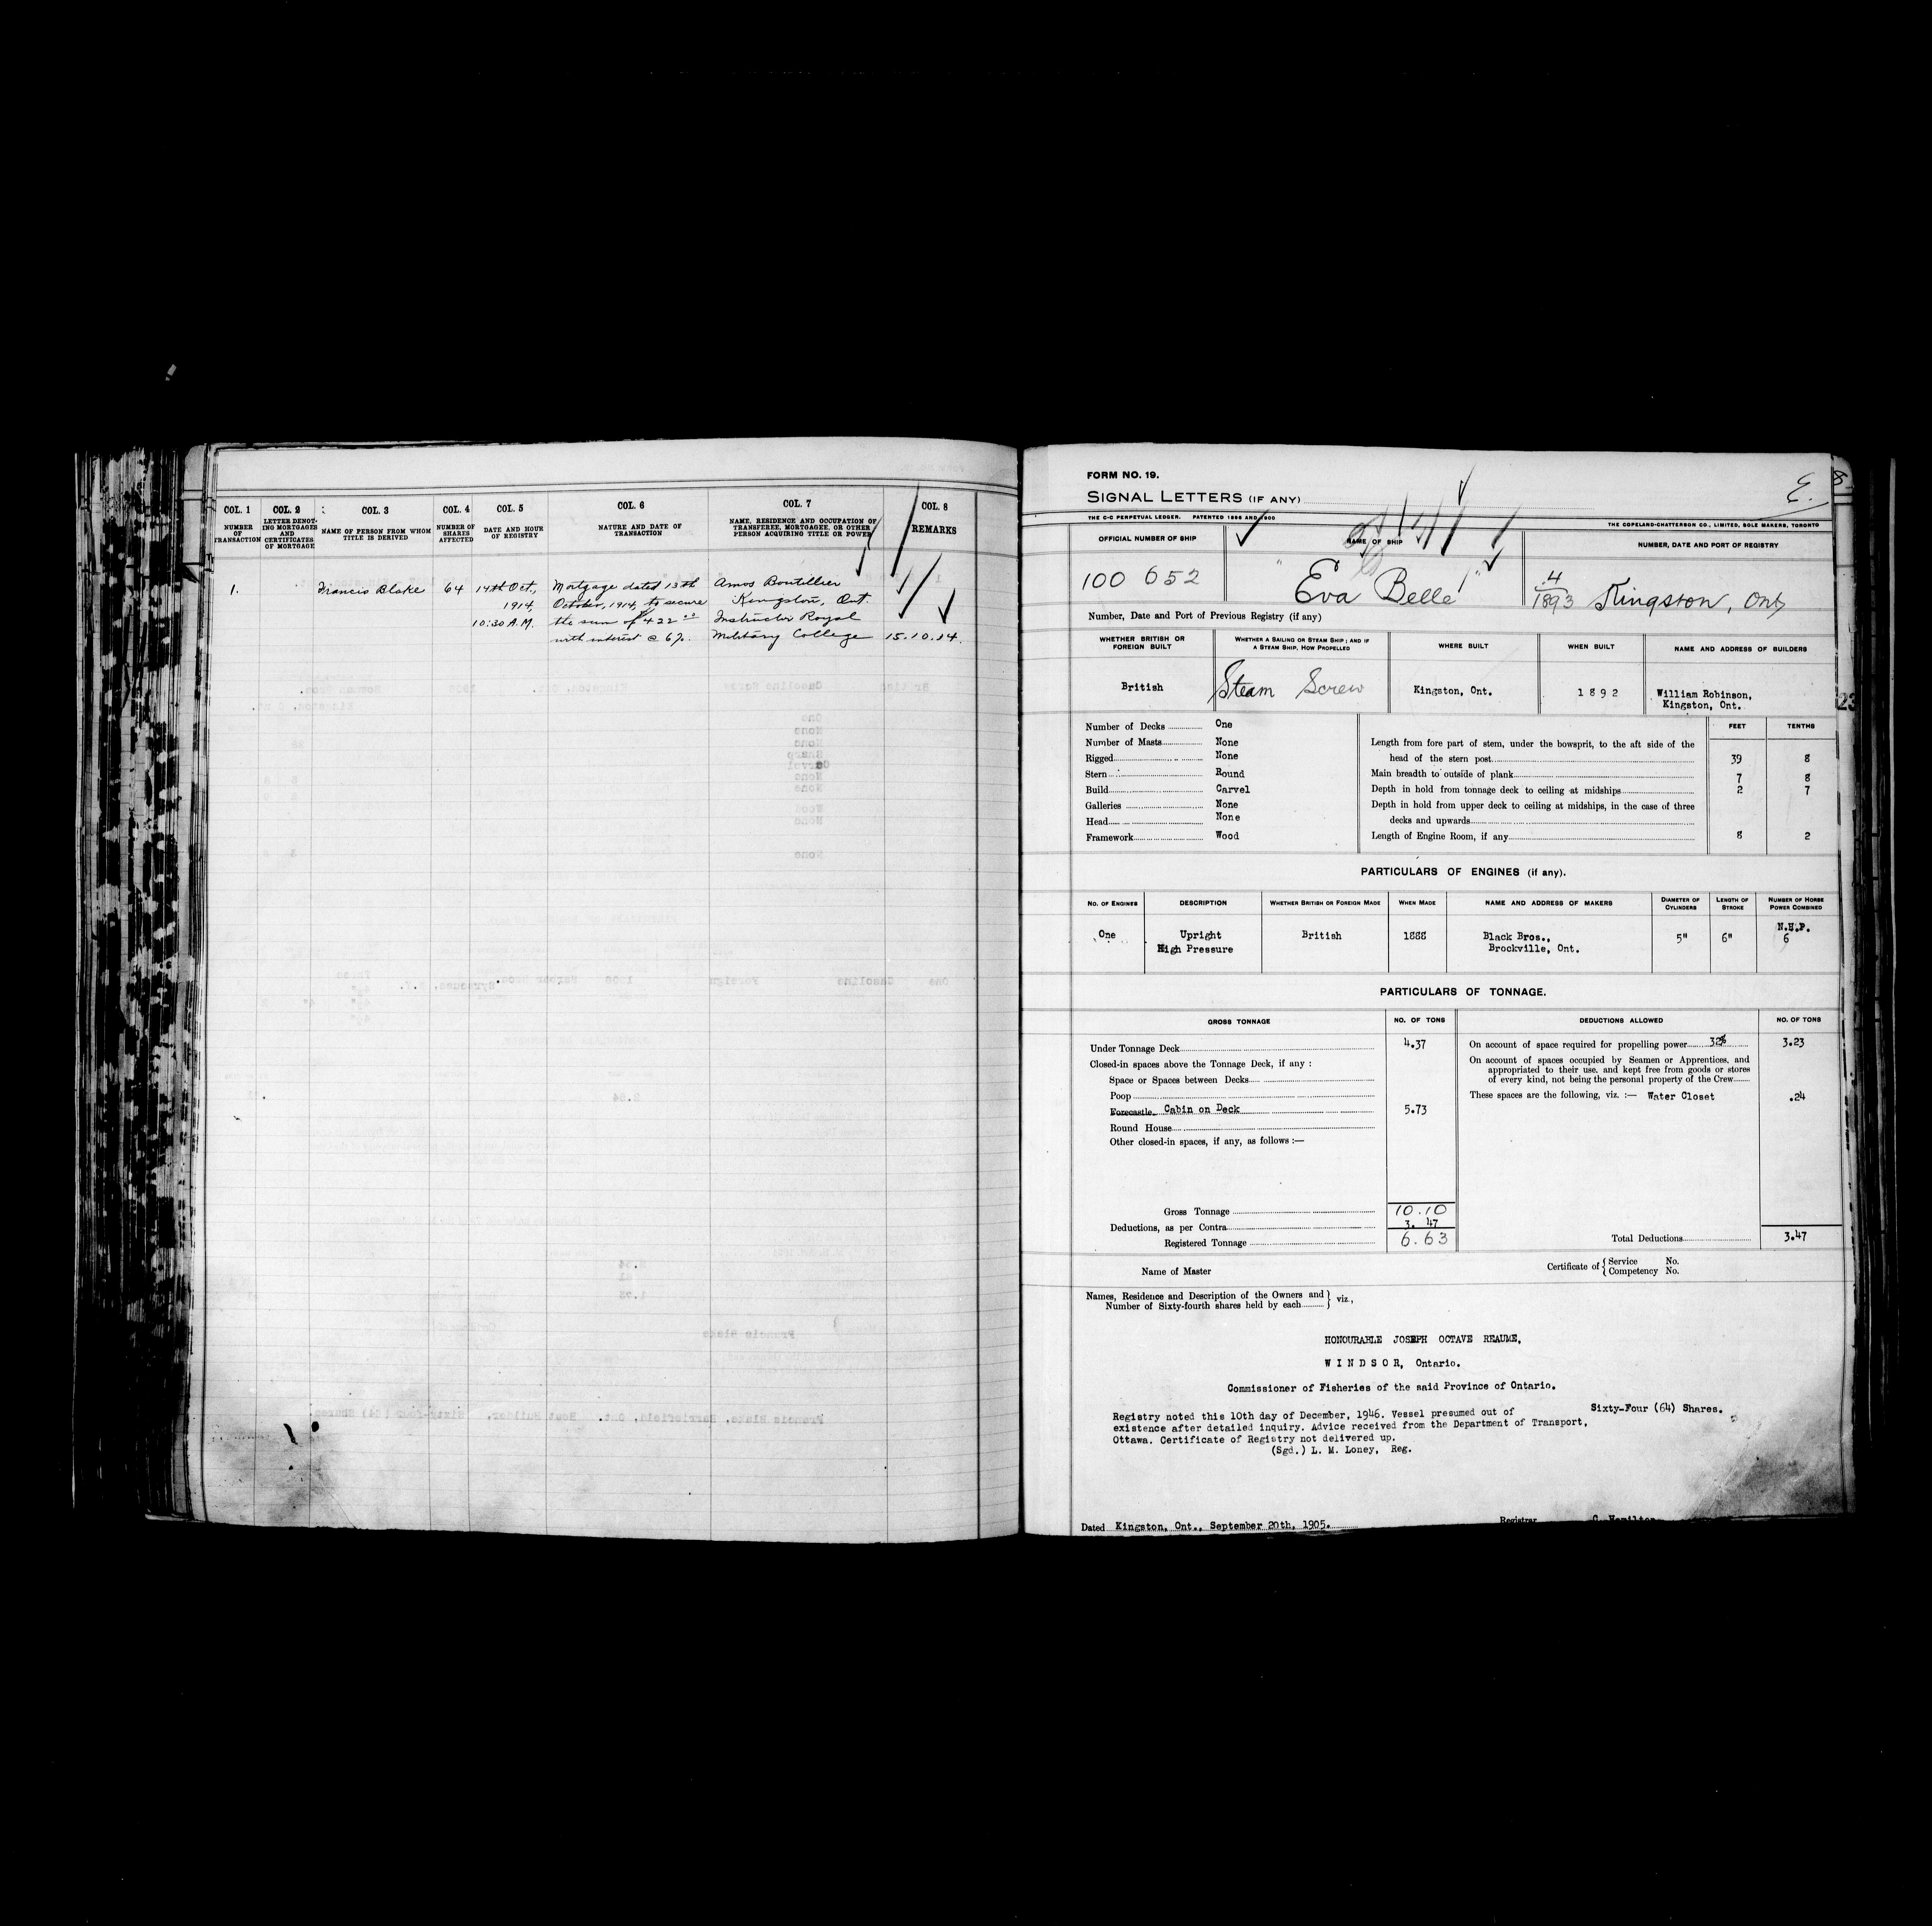 COL. 1
NUMBER
OF
TRANSACTION
COL. 2
LETTER DENOT-
ING MORTGAGES
AND
CERTIFICATES
OF MORTGAGE
COL. 3
NAME OF PERSON FROM WHOM
TITLE IS DERIVED
COL. 4
NUMBER OF
SHARES
AFFECTED
COL. 5
DATE AND HOUR
OF REGISTRY
COL. 6
NATURE AND DATE OF
TRANSACTION
COL. 7
NAME, RESIDENCE AND OCCUPATION OF
TRANSFEREE, MORTGAGEE, OR OTHER
PERSON ACQUIRING TITLE OR POWER
COL. 8
REMARKS
1. Francis Blake 64 14th Oct., Mortgage dated 13th Amos Boutillier
1914, October, 1914, to secure Kingston, Ont.
10:30 A.M. the sum of 422 Instructor Royal
with interest @ 6%. Military College 15.10.14.
FORM NO. 19.
SIGNAL LETTERS (IF ANY)
E.
THE C-C PERPETUAL LEDGER. PATENTED 1896 AND 1900
THE COPELAND-CHATTERSON CO., LIMITED, SOLE MAKERS, TORONTO
OFFICIAL NUMBER OF SHIP
NAME OF SHIP
NUMBER, DATE AND PORT OF REGISTRY
100 652
"Eva Belle"
4/1893 Kingston, Ont
Number, Date and Port of Previous Registry (if any)
WHETHER BRITISH OR
FOREIGN BUILT
WHETHER A SAILING OR STEAM SHIP; AND IF
A STEAM SHIP, HOW PROPELLED
WHERE BUILT
WHEN BUILT
NAME AND ADDRESS OF BUILDERS
British
Steam Screw
Kingston, Ont.
1892
William Robinson,
Kingston, Ont.
Number of Decks One
Number of Masts None
Rigged None
Stern Round
Build Carvel
Galleries None
Head None
Framework Wood
FEET TENTHS
Length from fore part of stem, under the bowsprit, to the aft side of the
head of the stern post 39 8
Main breadth to outside of plank 7 8
Depth in hold from tonnage deck to ceiling at midships 2 7
Depth in hold from upper deck to ceiling at midships, in the case of three
decks and upwards
Length of Engine Room, if any 8 2
PARTICULARS OF ENGINES (if any).
NO. OF ENGINES
DESCRIPTION
WHETHER BRITISH OR FOREIGN MADE
WHEN MADE
NAME AND ADDRESS OF MAKERS
DIAMETER OF
CYLINDERS
LENGTH OF
STROKE
NUMBER OF HORSE
POWER COMBINED
One
Upright
High Pressure
British
1888
Black Bros.,
Brockville, Ont.
5"
6"
N.H.P.
6
PARTICULARS OF TONNAGE.
GROSS TONNAGE
NO. OF TONS
DEDUCTIONS ALLOWED
NO. OF TONS
Under Tonnage Deck 4.37
Closed-in spaces above the Tonnage Deck, if any :
Space or Spaces between Decks
Poop
Forecastle Cabin on Deck 5.73
Round House
Other closed-in spaces, if any, as follows :—
Gross Tonnage 10.10
Deductions, as per Contra 3.47
Registered Tonnage 6.63
On account of space required for propelling power 32% 3.23
On account of spaces occupied by Seamen or Apprentices, and
appropriated to their use, and kept free from goods or stores
of every kind, not being the personal property of the Crew
These spaces are the following, viz. :— Water Closet .24
Total Deductions 3.47
Name of Master
Certificate of { Service No.
Competency No.
Names, Residence and Description of the Owners and
Number of Sixty-fourth shares held by each } viz.,
HONOURABLE JOSEPH OCTAVE REAUME,
WINDSOR, Ontario.
Commissioner of Fisheries of the said Province of Ontario.
Sixty-Four (64) Shares.
Registry noted this 10th day of December, 1946. Vessel presumed out of
existence after detailed inquiry. Advice received from the Department of Transport,
Ottawa. Certificate of Registry not delivered up.
(Sgd.) L. M. Loney, Reg.
Dated Kingston, Ont., September 20th, 1905.
Registrar C. Hamilton